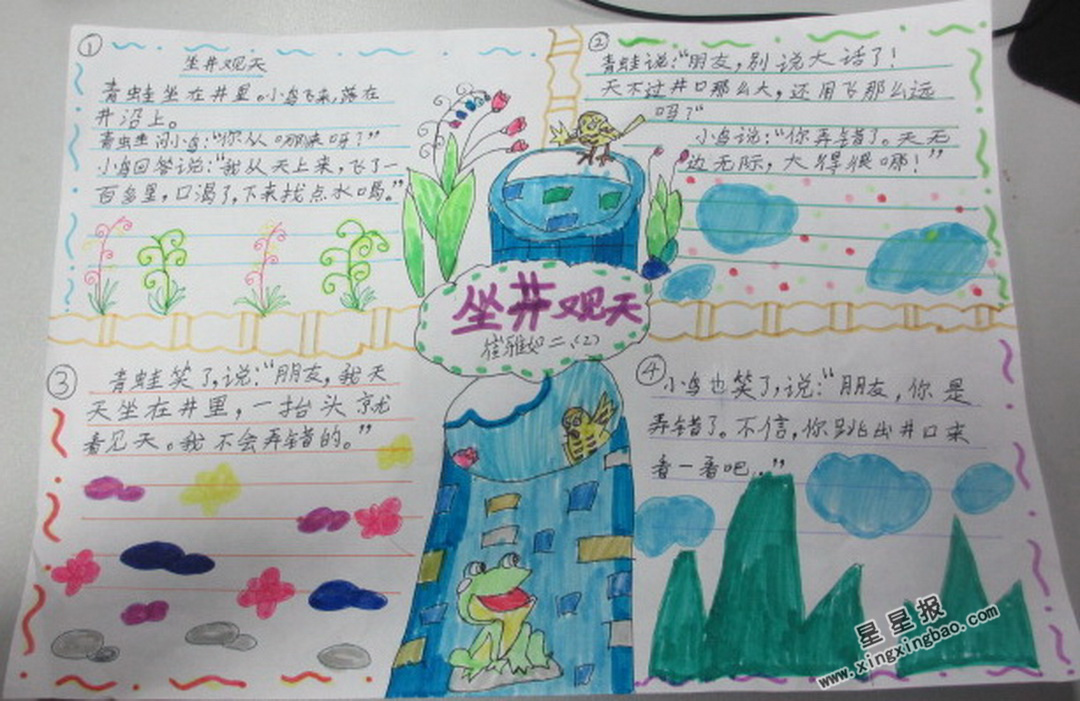 ①
坐井观天
青蛙坐在井里。小鸟飞来,落在
井沿上。
青蛙问小鸟:“你从哪来呀?”
小鸟回答说:“我从天上来,飞了一
百多里,口渴了,下来找点水喝。”
②
青蛙说:“朋友,别说大话了!
天不过井口那么大,还用飞那么远
吗?”
小鸟说:“你弄错了。天无
边无际,大得很哪!”
坐井观天
崔雅如二、(2)
③
青蛙笑了,说:“朋友,我天
天坐在井里,一抬头就
看见天。我不会弄错的。”
④
小鸟也笑了,说:“朋友,你是
弄错了。不信,你跳出井口来
看一看吧。”
星星报
www.xingxingbao.com